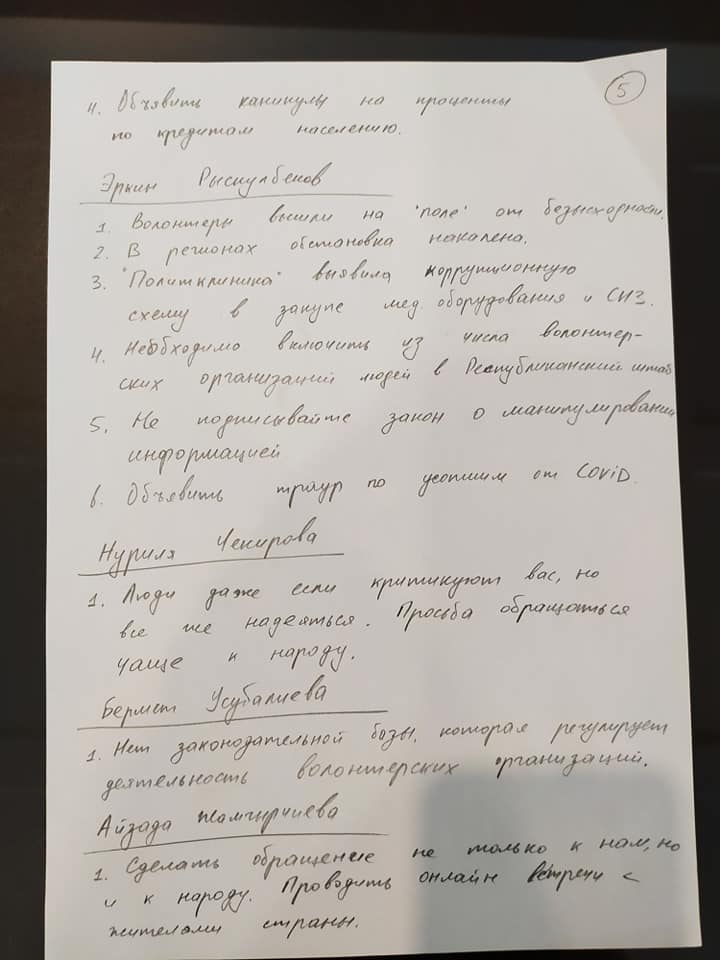 5
4. Объявить каникулы на проценты
по кредитам населению.
Эркин Рыскулбеков
1. Волонтеры вышли на "поле" от безысходности.
2. В регионах обстановка накалена.
3. "Политклиника" выявила коррупционную
схему в закупе мед. оборудования и СИЗ.
4. Необходимо включить из числа волонтер-
ских организаций людей в Республиканский штаб
5. Не подписывайте закон о манипулировании
информацией
6. Объявить траур по усопшим от COVID.
Нуриля Чекирова
1. Люди даже если критикуют вас, но
все же надеяться. Просьба обращаться
чаще к народу.
Бермет Усубалиева
1. Нет законодательной базы, которая регулирует
деятельность волонтерских организаций.
Айзада Жамгырчиева
1. Сделать обращение не только к нам, но
и к народу. Проводить онлайн встречи с
жителями страны.